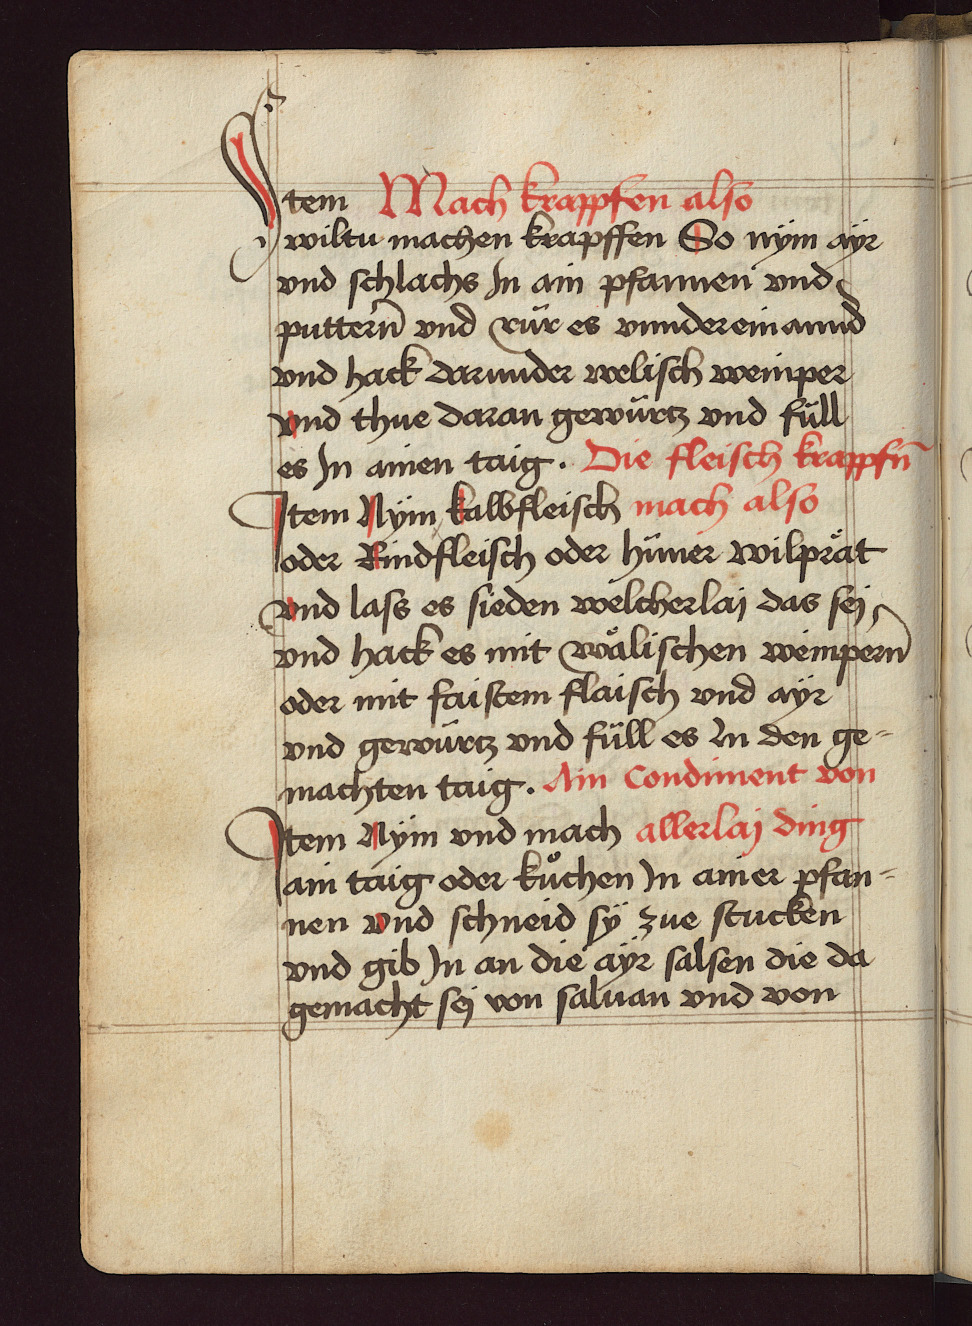 Item Mach krappfen also
wiltu machen krapffen So nÿm aÿr
vnd schlachs In ain pfannen vnd
puttern̄ vnd rür es vnndereinannd
vnd hack darunder welisch weinper
vnd thue daran gewürtz vnd füll
es In ainen taig. Die fleisch krappfn̄
Item Nÿm kalbfleisch mach also
oder Rindfleisch oder hüner wilprät
vnd lass es sieden welcherlaj das sej
vnd hack es mit wälischen weinpern̄
oder mit faistem flaisch vnd aÿr
vnd gewürtz vnd füll es In den ge-
machten taig. Ain Condiment von
Item Nÿm vnd mach allerlaj ding
ain taig oder kůchen In ainer pfan-
nen vnd schneid sÿ zue stucken
vnd gib In an die aÿr salsen die da
gemacht sej von saluan vnd von